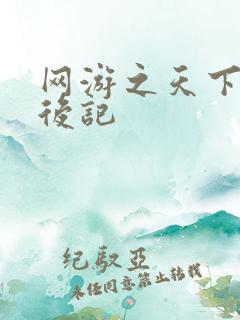 网游之天下
後記
纪驭亞
未经同意禁止转载